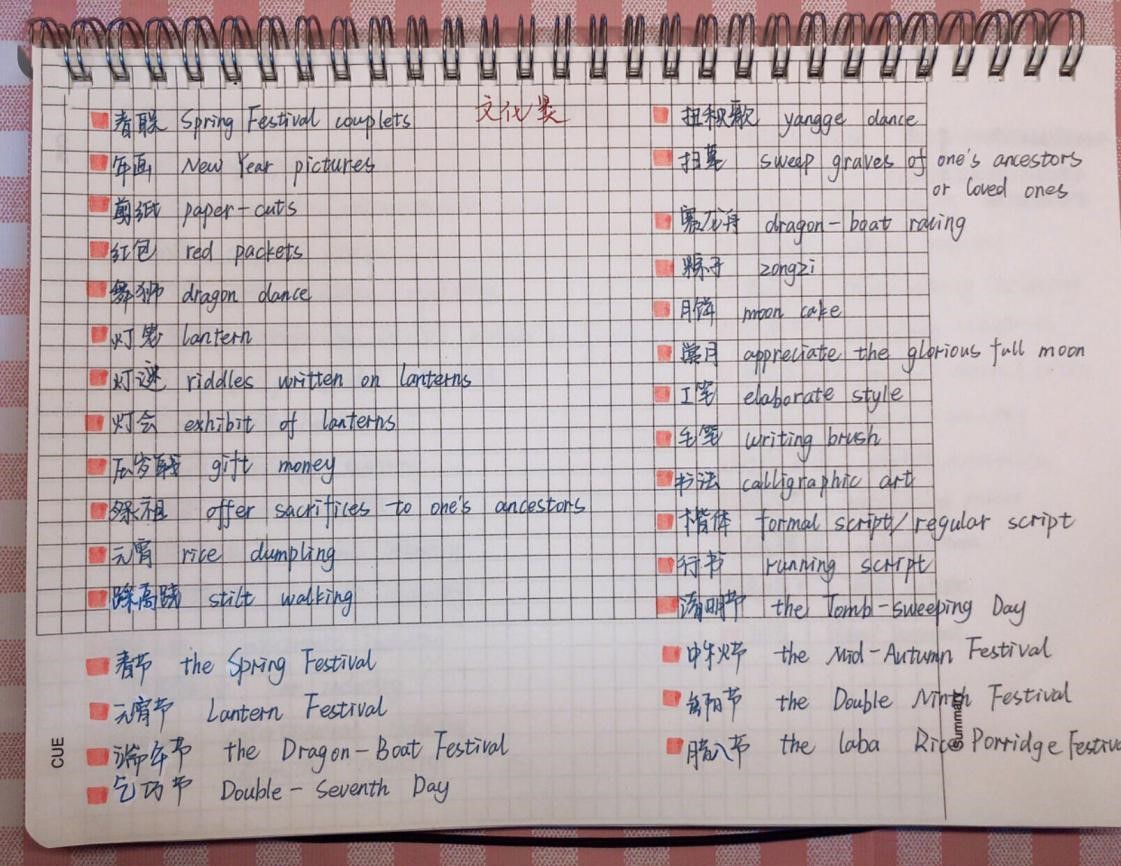 文化类
春联 Spring Festival couplets
年画 New Year pictures
剪纸 paper-cuts
红包 red packets
舞狮 dragon dance
灯笼 lantern
灯谜 riddles written on lanterns
灯会 exhibit of lanterns
压岁钱 gift money
祭祖 offer sacrifices to one's ancestors
元宵 rice dumpling
踩高跷 stilt walking
春节 the Spring Festival
元宵节 Lantern Festival
端午节 the Dragon-Boat Festival
乞巧节 Double-Seventh Day
扭秧歌 yangge dance
扫墓 sweep graves of one's ancestors
or loved ones
赛龙舟 dragon-boat racing
粽子 zongzi
月饼 moon cake
赏月 appreciate the glorious full moon
工笔 elaborate style
毛笔 writing brush
书法 calligraphic art
楷体 formal script/regular script
行书 running script
清明节 the Tomb-sweeping Day
中秋节 the Mid-Autumn Festival
重阳节 the Double Ninth Festival
腊八节 the laba Rice Porridge Festiva
CUE
Summary